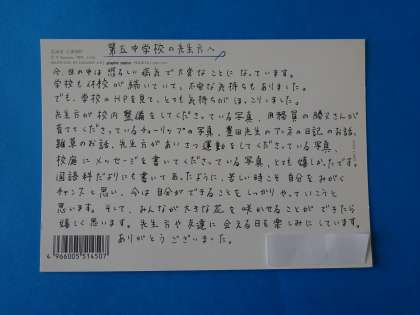 第五中学校の先生方へ
今、世の中は恐ろしい病気で大変なことになっています。
学校も休校が続いていて、不安な気持ちもありました。
でも、学校のHPを見て、とても気持ちがほっこりしました。
先生方が校内整備をしてくださっている写真、用務員の勝又さんが
育ててくださっているチューリップの写真、豊田先生のアンネの日記のお話、
雑草のお話、先生方があいさつ運動をしてくださっている写真、
校庭にメッセージを書いてくださっている写真、とても嬉しかったです。
国語科だよりにも書いてあったように、苦しい時こそ自分をみがく
チャンスと思い、今は自分ができることをしっかりやっていこうと
思います。そして、みんなが大きな花を咲かせることができたら
嬉しく思います。先生方や友達に会える日を楽しみにしています。
ありがとうございました。
4966005514507